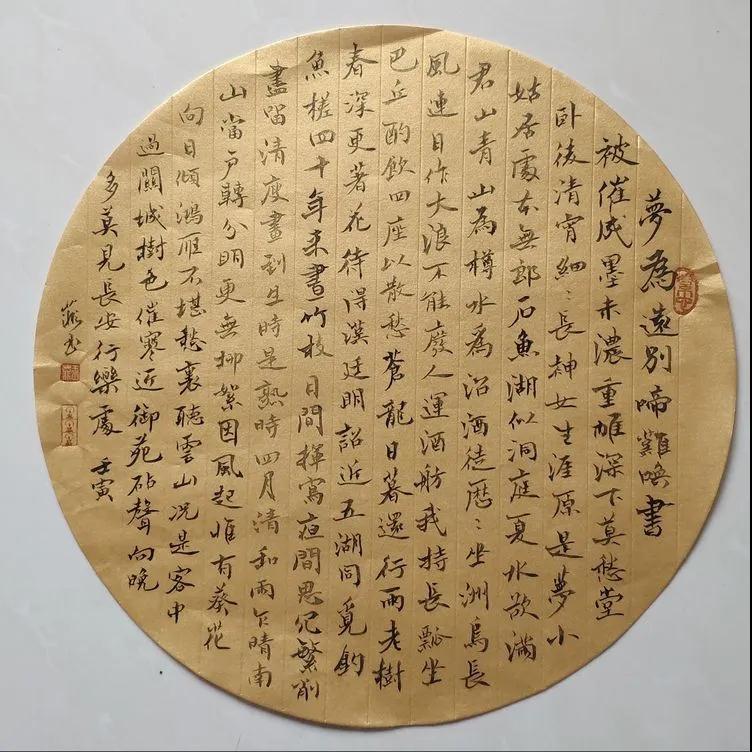 夢為遠別啼難喚書
被催成墨未濃重帷深下莫愁堂
卧後清宵細〻長神女生涯原是夢小
姑居處本無郎石魚湖似洞庭夏水欲滿
君山青山為樽水為沼酒徒歷〻坐洲烏長
風連日作大浪不能廢人運酒舫我持長瓢坐
巴丘酌飲四座以散愁蒼龍日暮還行雨老樹
春深更著花待得漢廷明詔近五湖同覓釣
魚槎四十年來畫竹枝日間揮寫夜間思冗繁削
盡留清瘦畫到生時是熟時四月清和雨乍晴南
山當户轉分明更無柳絮因風起惟有葵花
向日傾鴻雁不堪愁裏聽雲山況是客中
過關城樹色催寒近御苑砧聲向晚
多莫見長安行樂處 壬寅